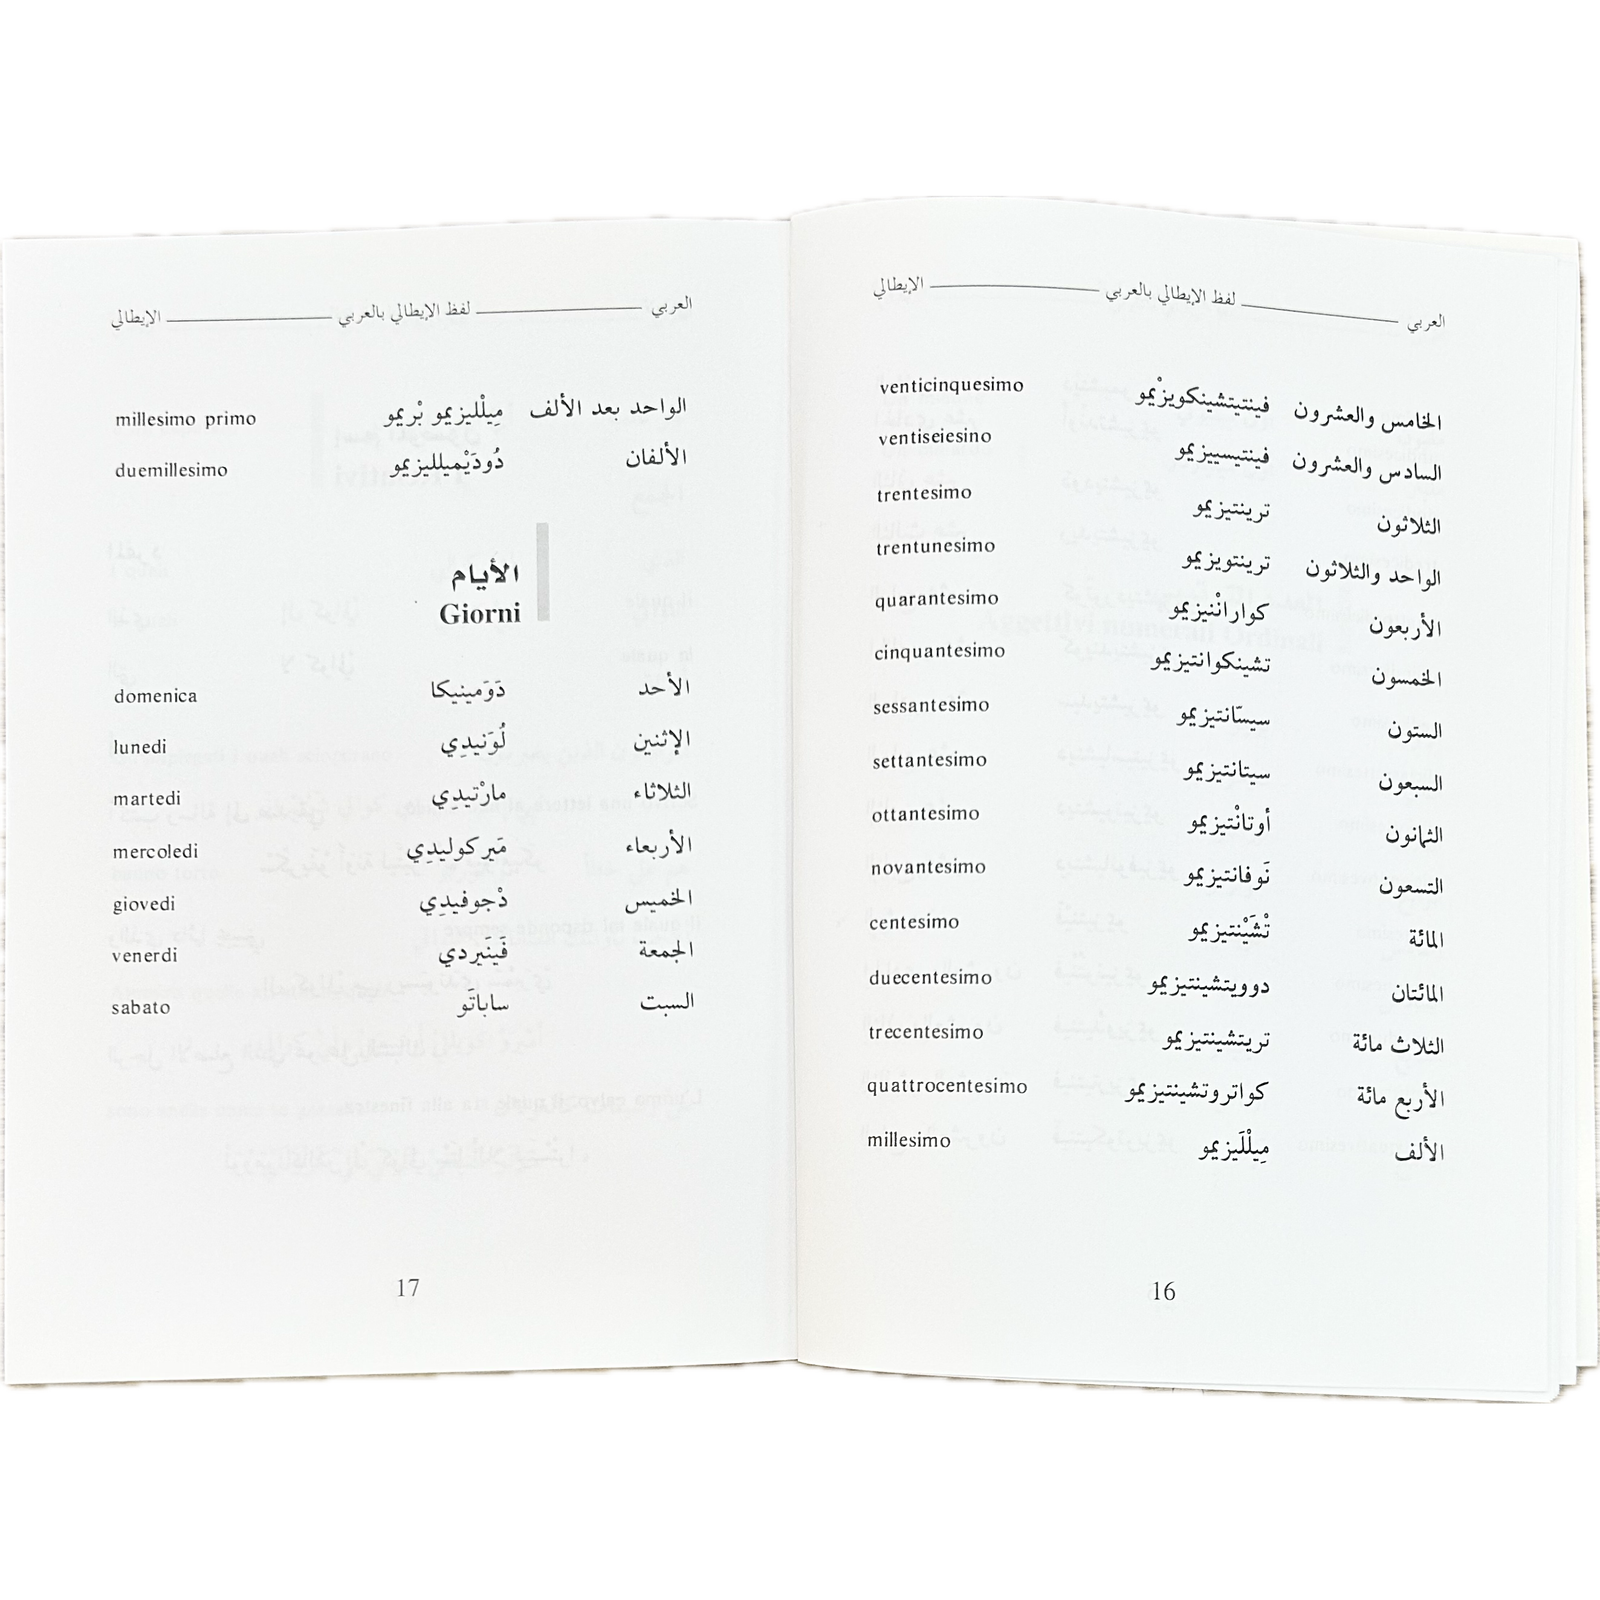 العربي لفظ الإيطالي بالعربي الإيطالي
الخامس والعشرون فينتيتشينكويزْيمو venticinquesimo
السادس والعشرون فينتيسييزيمو ventiseiesino
الثلاثون ترينتيزيمو trentesimo
الواحد والثلاثون ترينتويزيمو trentunesimo
الأربعون كوارانْتيزيمو quarantesimo
الخمسون تشينكوانتيزيمو cinquantesimo
الستون سيسّانتيزيمو sessantesimo
السبعون سيتانتيزيمو settantesimo
الثمانون أوتانْتيزيمو ottantesimo
التسعون نَوفانتيزيمو novantesimo
المائة تْشَيْنتيزيمو centesimo
المائتان دوويتشينتيزيمو duecentesimo
الثلاث مائة تريتشينتيزيمو trecentesimo
الأربع مائة كواتروتشينتيزيمو quattrocentesimo
الألف مِيلْلَيزيمو millesimo
16
العربي لفظ الإيطالي بالعربي الإيطالي
الواحد بعد الألف مِيلْليزيمو بْريمو millesimo primo
الألفان دُودَيْميلليزيمو duemillesimo
الأيام
Giorni
الأحد دَوَمينيكا domenica
الإثنين لُوَنيدِي lunedi
الثلاثاء مارْتيدِي martedi
الأربعاء مَيركوليدِي mercoledi
الخميس دْجوفيدِي giovedi
الجمعة فَينَيردي venerdi
السبت ساباتَو sabato
17